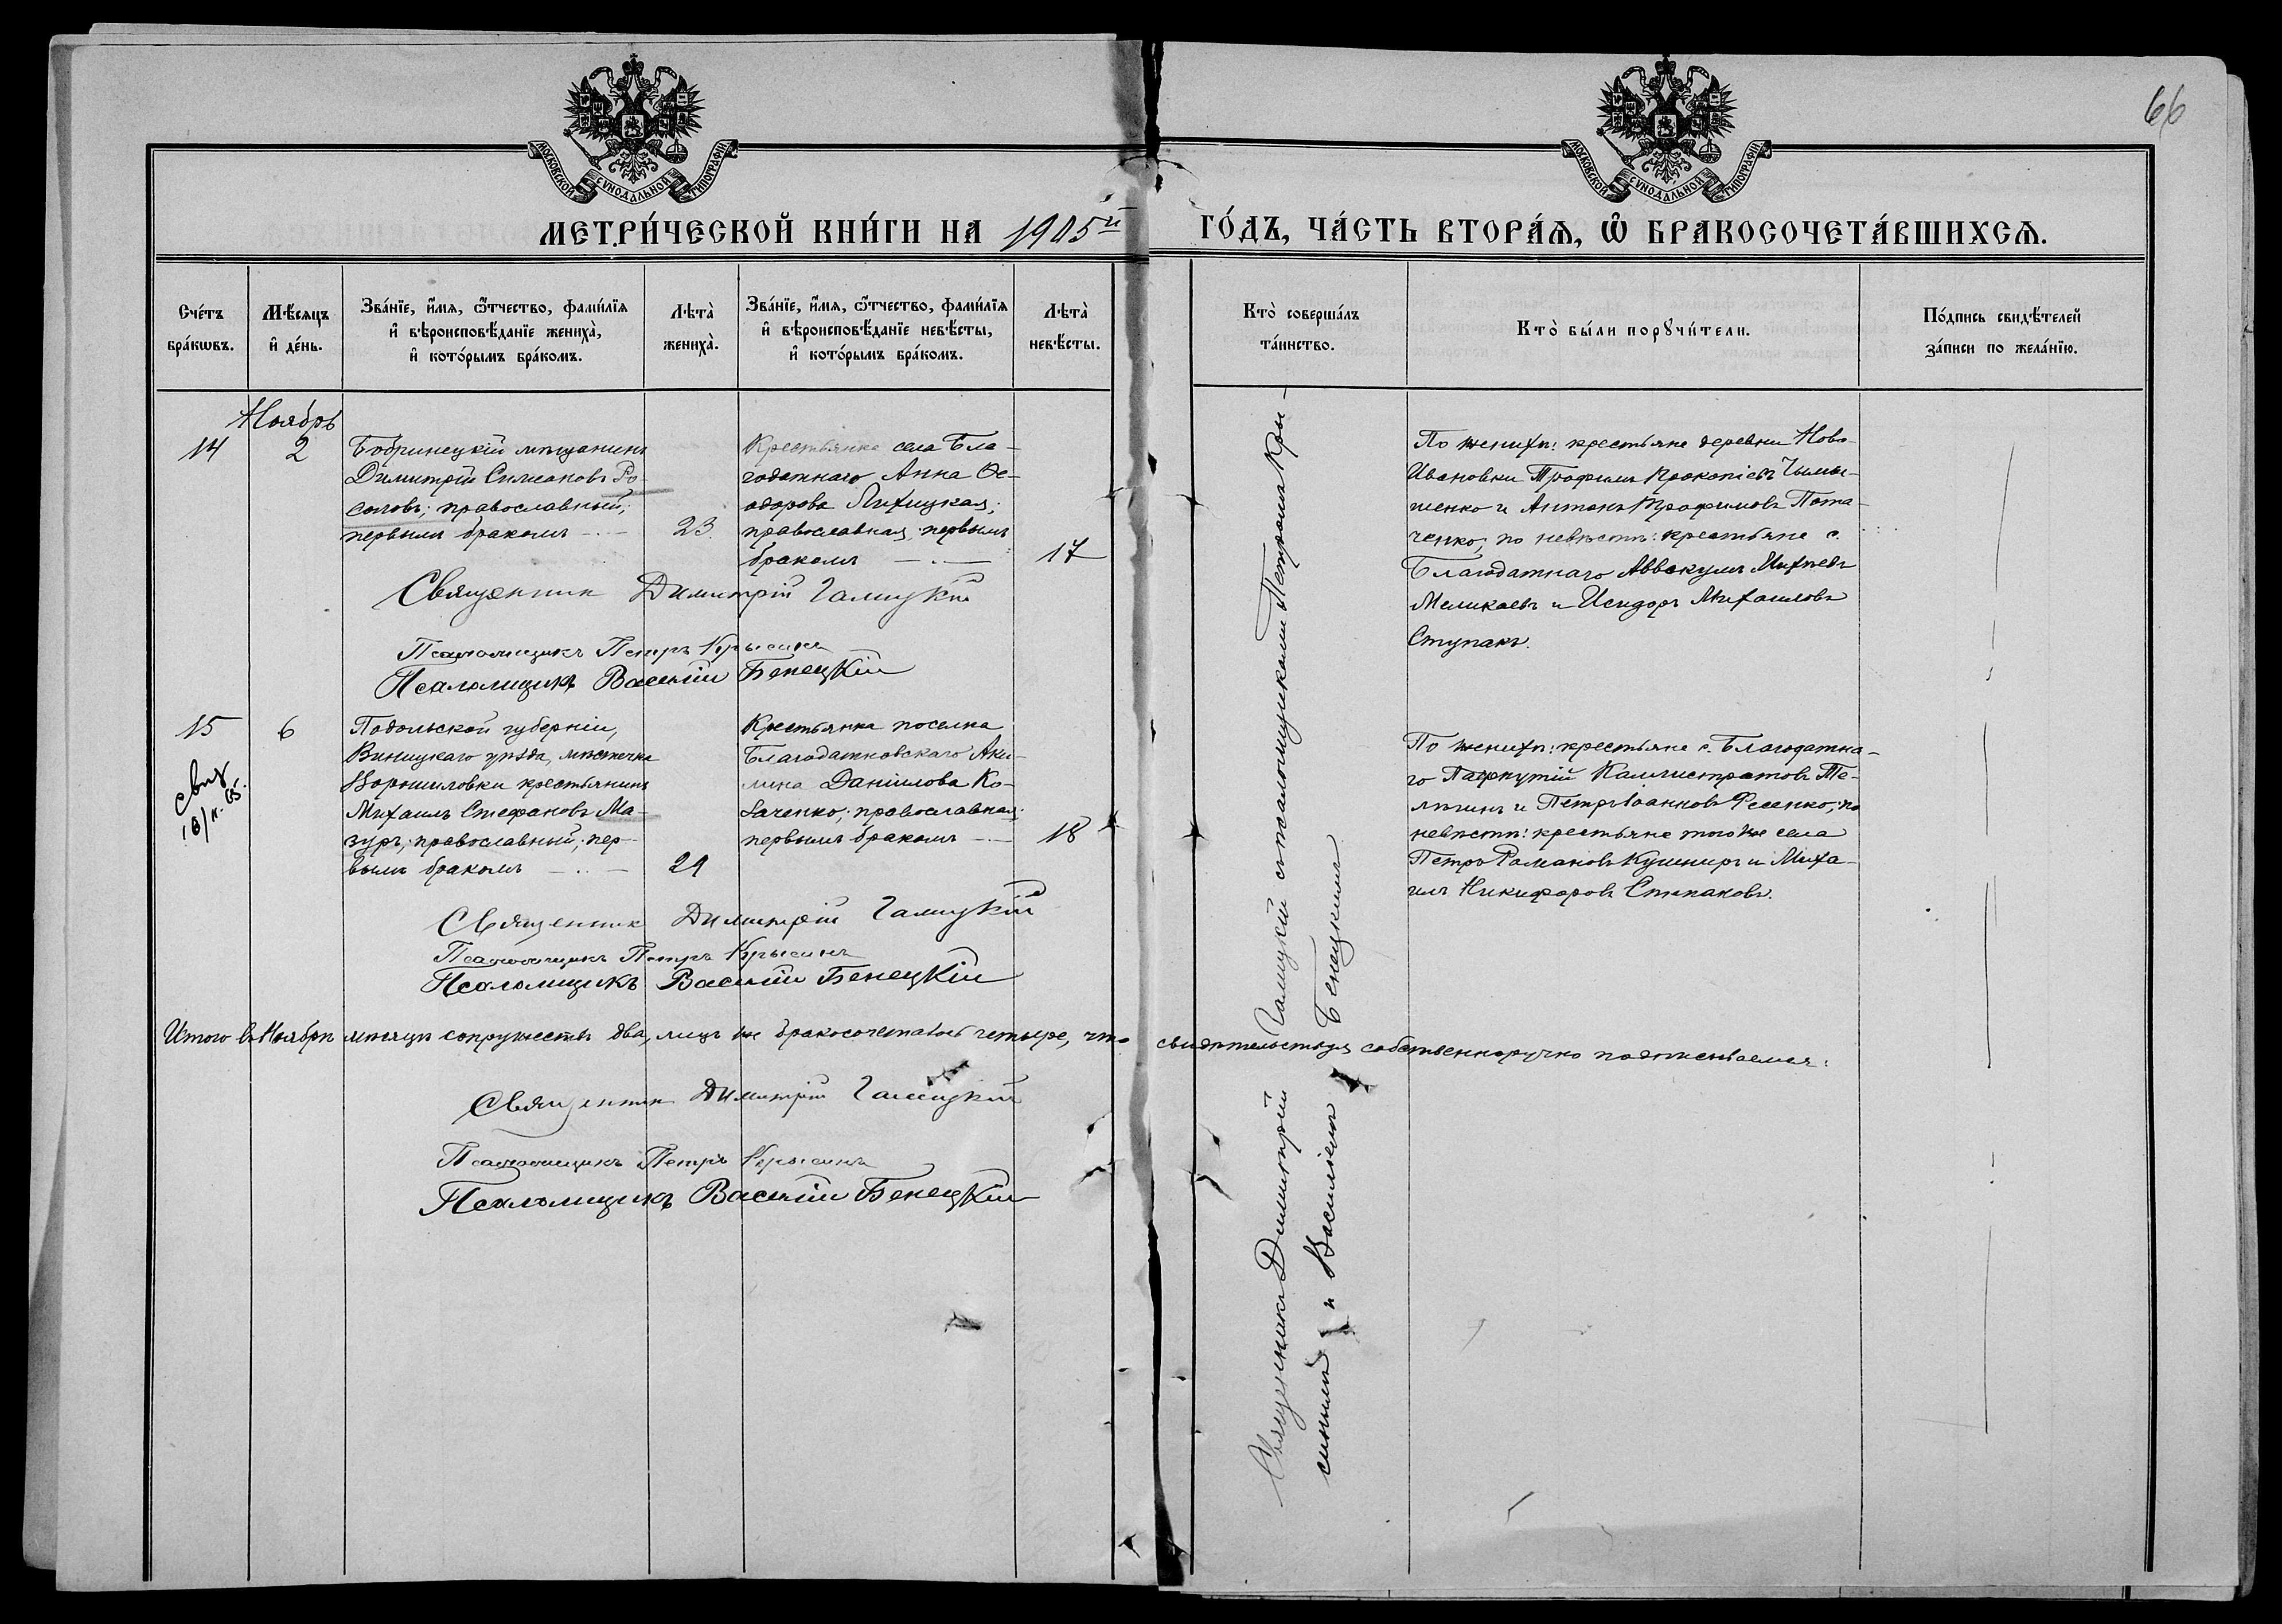 66
МОСКОВСКОЙ СѴНОДАЛЬНОЙ ТИПОГРАФІИ
МОСКОВСКОЙ СѴНОДАЛЬНОЙ ТИПОГРАФІИ
МЕТРИ́ЧЕСКОЙ КНИ́ГИ НА 1905й ГО́ДЪ, ЧА́СТЬ ВТОРА́Ѧ, Ѡ҆ БРАКОСОЧЕТА́ВШИХСѦ.
Сче́тъ
бра́кѡвъ.
Мѣ́сяцъ
и҆ де́нь.
Зва́нїе, и҆́мѧ, ѻ҆́тчество, фамі́лїѧ
и҆ вѣроисповѣ́данїе жениха̀,
и҆ кото́рымъ бра́комъ.
Лѣта̀
жениха̀.
Зва́нїе, и҆́мѧ, ѻ҆́тчество, фамі́лїѧ
и҆ вѣроисповѣ́данїе невѣ́сты,
и҆ кото́рымъ бра́комъ.
Лѣта̀
невѣ́сты.
Кто̀ соверша́лъ
та́инство.
Кто̀ бы́ли порꙋчи́тели.
По́дпись свидѣ́телей
за́писи по жела́нїю.
Ноябрь
14
2
Бобринецкій мѣщанинъ
Димитрій Симеоновъ Ро-
соловъ; православный;
первымъ бракомъ
23.
Крестьянка села Бла-
годатнаго Анна Ѳе-
одорова Лихицкая;
православная; первымъ
бракомъ
17
По женихѣ: крестьяне деревни Ново-
Ивановки Трофимъ Прокопіевъ
шенко и Антонъ Трофимовъ Пота-
ченко; по невѣстѣ: крестьяне с.
Благодатнаго Аввакумъ Михѣевъ
и Исидоръ Михаиловъ
Ступакъ.
Священник Димитрій Галицкій
Псаломщикъ Петръ Крысинъ
Псаломщикъ Василій Бенецкій
15
6
свид
16/XI. 05.
Подольской губерніи,
Виницкаго уѣзда, мѣстечка
Ворошиловки крестьянинъ
Михаилъ Стефановъ Ма-
зуръ; православный; пер-
вымъ бракомъ
21
Крестьянка поселка
Благодатновскаго Аки-
лина Даніилова Ко-
заченко; православная;
первымъ бракомъ
18
По женихѣ: крестьяне с. Благодатна-
го Пафнутій Каллистратовъ Те-
лѣгинъ и Петръ Іоанновъ Фесенко; по
невѣстѣ: крестьяне того же села
Петръ Романовъ Кушниръ и Миха-
илъ Никифоровъ Степановъ.
Священник Димитрій Галицкій
Псаломщикъ Петръ Крысинъ
Псаломщикъ Василій Бенецкій
Священникъ Димитрій Галицкій съ псаломщиками Петромъ Кры-
синымъ и Василіемъ Бенецкимъ.
Итого въ Ноябрѣ мѣсяцѣ супружествъ два, лицъ же бракосочеталось четыре, что свидѣтельствуя собственноручно подписываемся:
Священник Димитрій Галицкій
Псаломщикъ Петръ Крысинъ
Псаломщикъ Василій Бенецкій